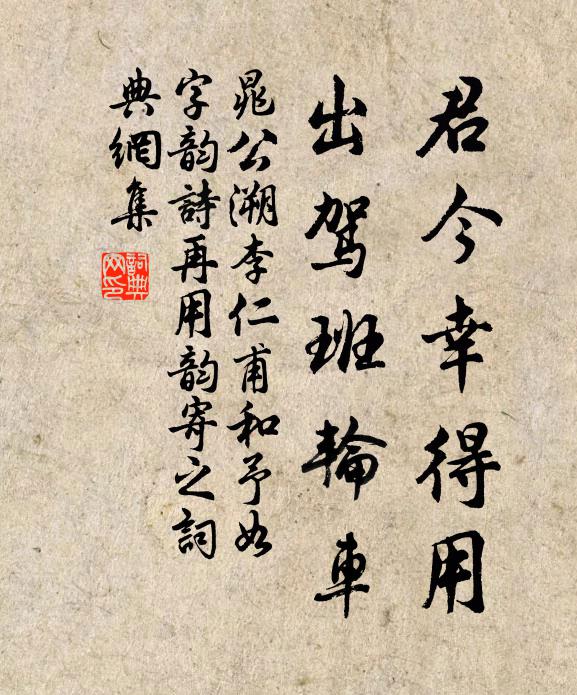 君今幸得用
出駕班輪車
晁公溯李仁甫和予如
字韵詩再用韵寄之詞
典網集
詞典
网印